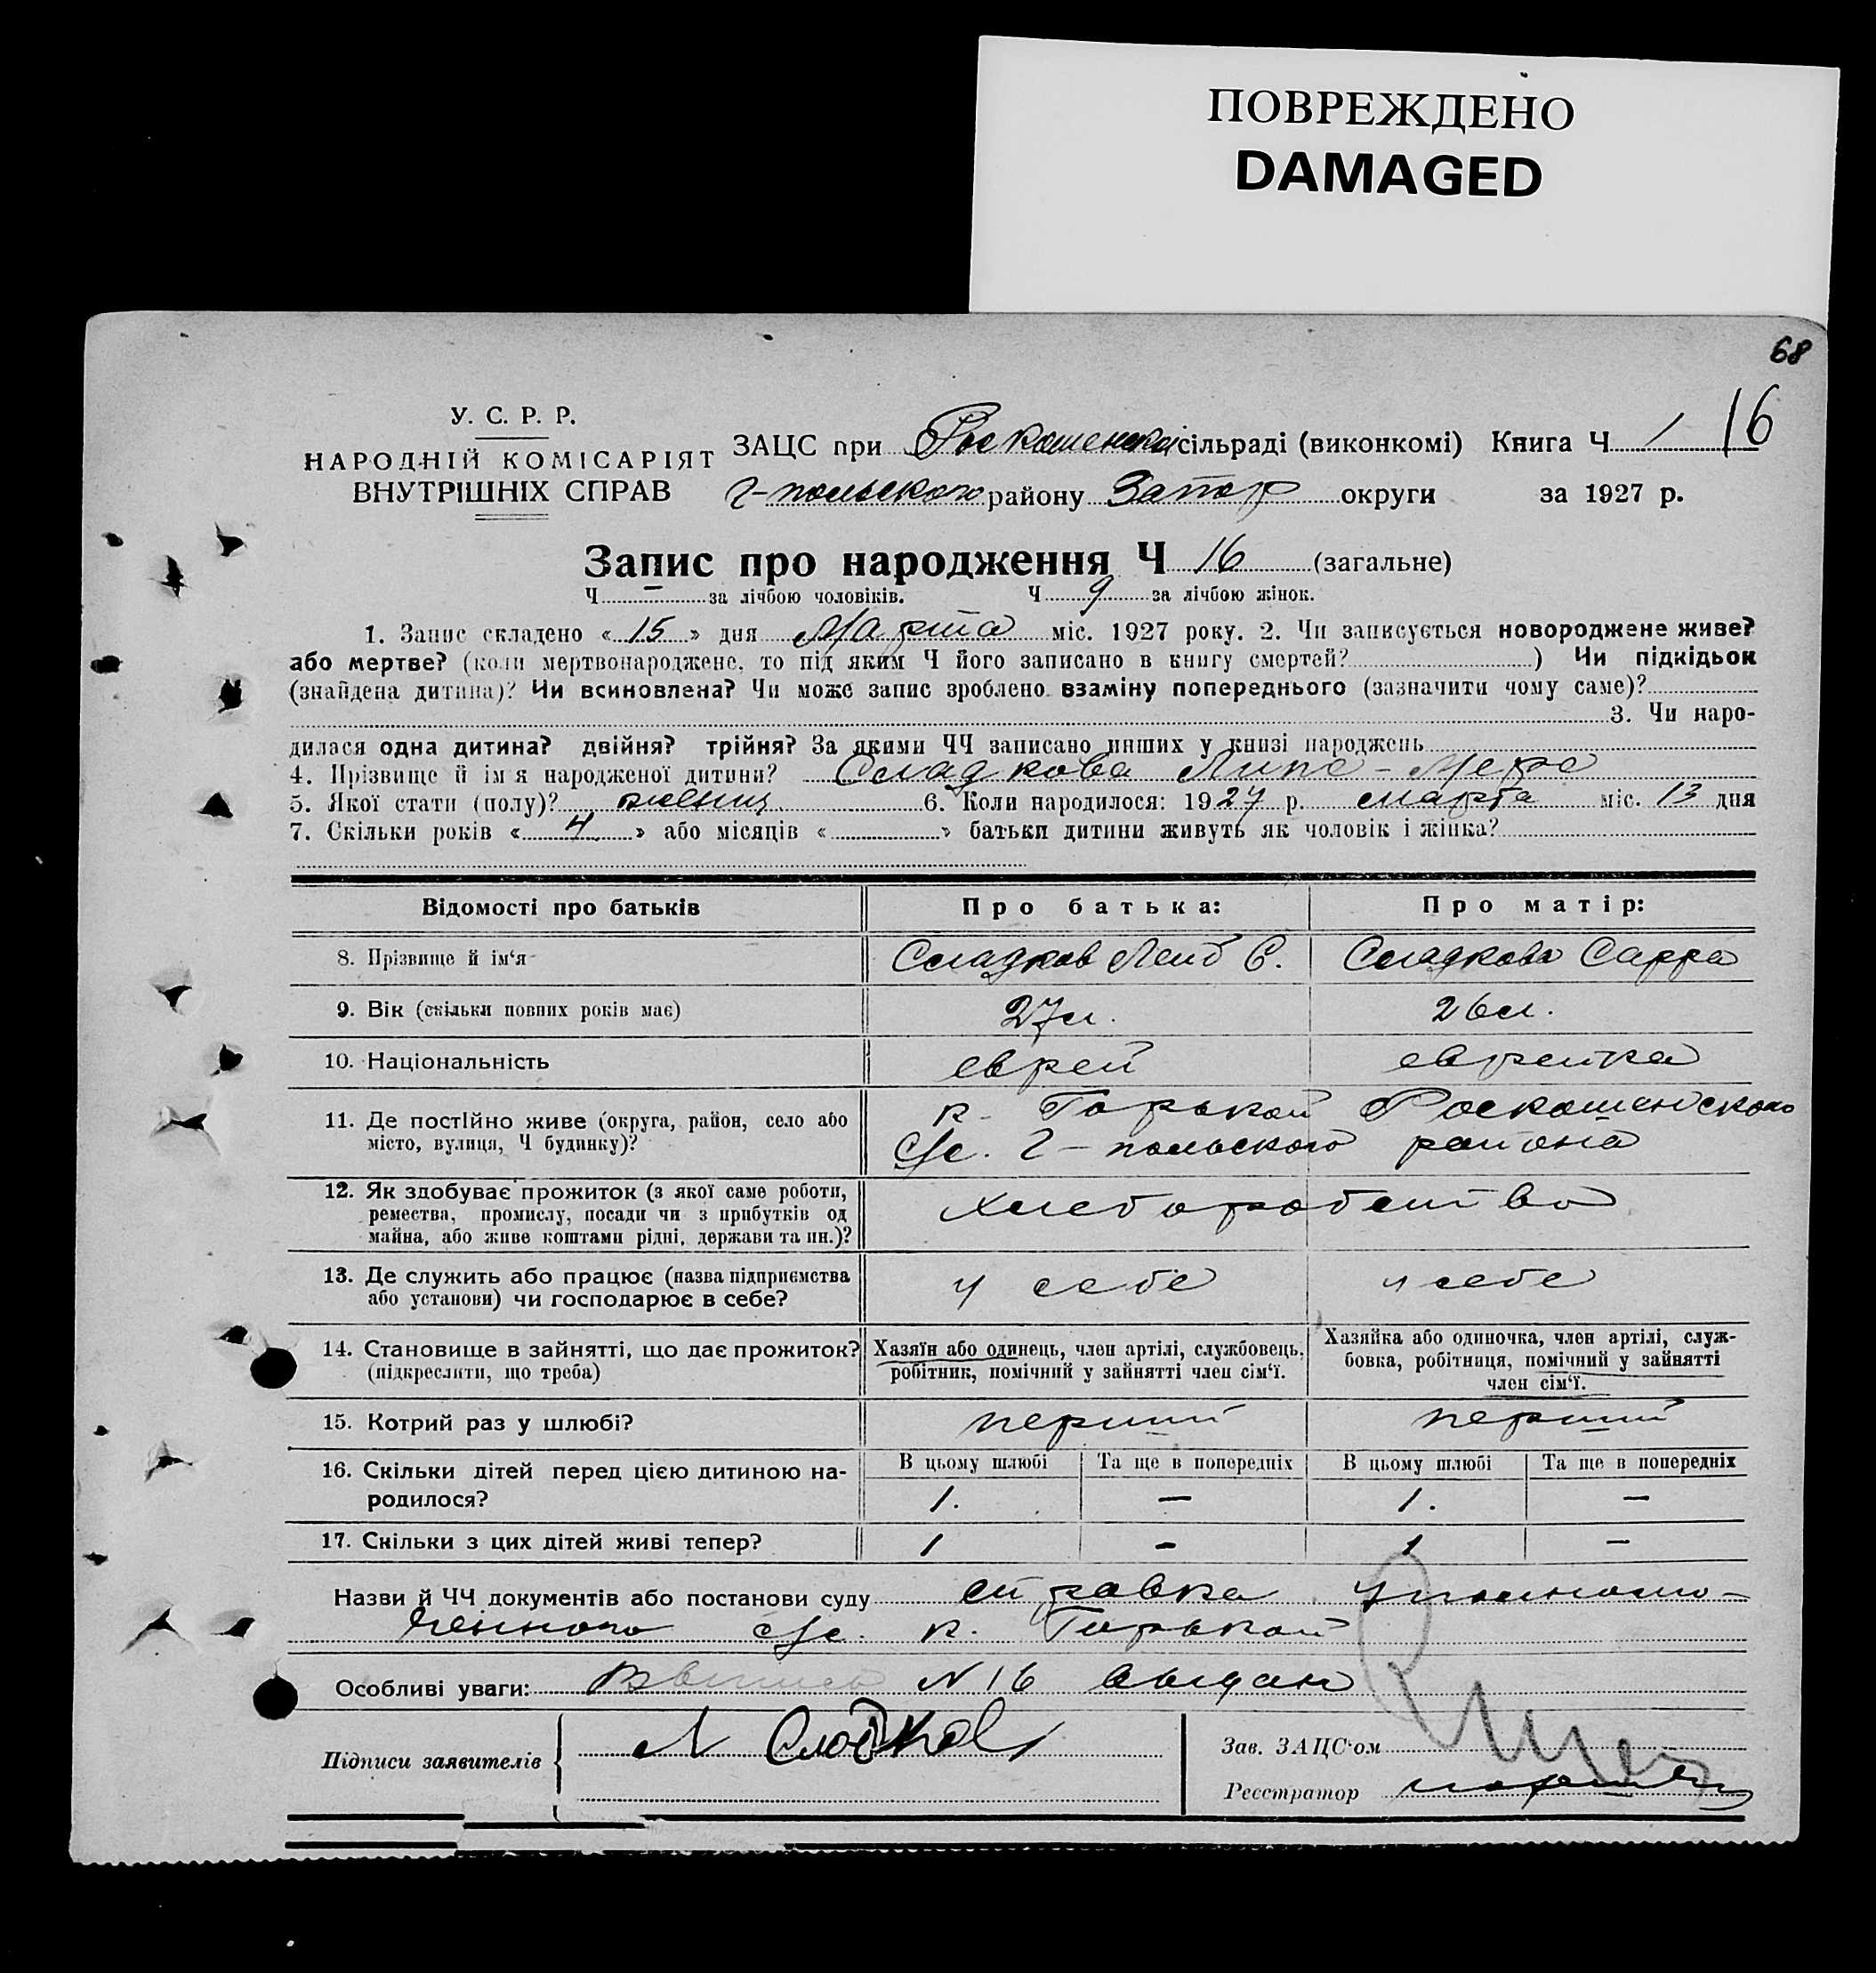 ПОВРЕЖДЕНО
DAMAGED
68
У. С. Р. Р.
НАРОДНІЙ КОМІСАРІЯТ
ВНУТРІШНІХ СПРАВ
ЗАЦС при Роскошенской сільраді (виконкомі) Книга Ч 1 16
г-польского району Запор округи за 1927 р.
Запис про народження Ч 16 (загальне)
Ч — за лічбою чоловіків. Ч 9 за лічбою жінок.
1. Запис складено « 15 » дня Марта міс. 1927 року. 2. Чи записується новороджене живе?
або мертве? (коли мертвонароджене, то під яким Ч його записано в книгу смертей? ) Чи підкідьок
(знайдена дитина)? Чи всиновлена? Чи може запис зроблено взаміну попереднього (зазначити чому саме)?
3. Чи наро-
дилася одна дитина? двійня? трійня? За якими ЧЧ записано инших у книзі народжень
4. Прізвище й імя народженої дитини? Сладкова Липе-Мере
5. Якої стати (полу)? женщ. 6. Коли народилося: 1927 р. марта міс. 13 дня
7. Скільки років « 4 » або місяців « » батьки дитини живуть як чоловік і жінка?
Відомості про батьків Про батька: Про матір:
8. Прізвище й ім‘я Сладков Лейб С. Сладкова Сарра
9. Вік (скільки повних років має) 27 л. 26 л.
10. Національність еврей еврейка
11. Де постійно живе (округа, район, село або к. Горькой Роскошенского
місто, вулиця, Ч будинку)? с/с. г-польского района
12. Як здобуває прожиток (з якої саме роботи,
ремества, промислу, посади чи з прибутків од хлеборобство
майна, або живе коштами рідні, держави та ин.)?
13. Де служить або працює (назва підприємства у себе у себе
або установи) чи господарює в себе?
14. Становище в зайнятті, що дає прожиток? Хазяїн або одинець, член артілі, службовець, Хазяйка або одиночка, член артілі, служ-
(підкреслити, що треба) робітник, помічний у зайнятті член сім‘ї. бовка, робітниця, помічний у зайнятті
член сім‘ї.
15. Котрий раз у шлюбі? перший перший
16. Скільки дітей перед цією дитиною на- В цьому шлюбі Та ще в попередніх В цьому шлюбі Та ще в попередніх
родилося? 1. — 1. —
17. Скільки з цих дітей живі тепер? 1 — 1 —
Назви й ЧЧ документів або постанови суду справка уполномо-
ченного с/с. к. Горькой
Особливі уваги: Выпись N 16 выдан
Підписи заявителів Л Сладков
Зав. ЗАЦС‘ом
Реєстратор